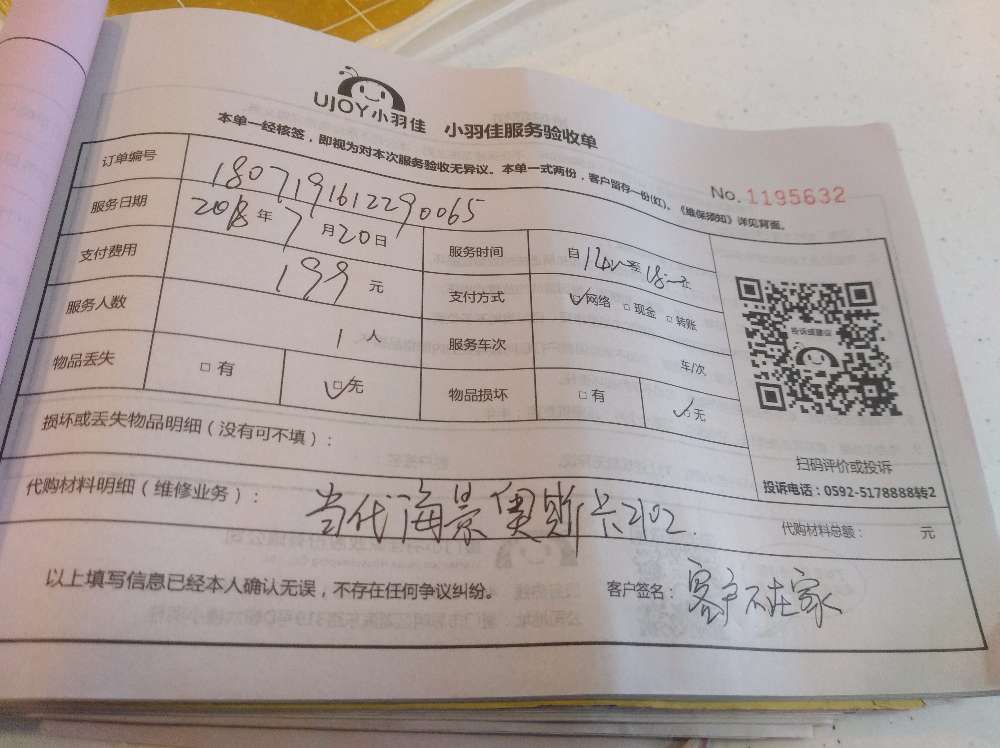 UJOY小羽佳 小羽佳服务验收单
本单一经核签，即视为对本次服务验收无异议。本单一式两份，客户留存一份(红)。《维保须知》详见背面。
No. 1195632
订单编号 180719161229 0065
服务日期 2018年7月20日 服务时间 自 至
支付费用 199元 支付方式 ☑网络 □现金 □转账
服务人数 1人 服务车次 车/次
物品丢失 □有 ☑无 物品损坏 □有 ☑无
告诉或建议
扫码评价或投诉
投诉电话：0592-5178888转2
损坏或丢失物品明细（没有可不填）：
代购材料明细（维修业务）： 当代海景奥斯卡2102. 代购材料总额： 元
以上填写信息已经本人确认无误，不存在任何争议纠纷。 客户签名：客户不在家